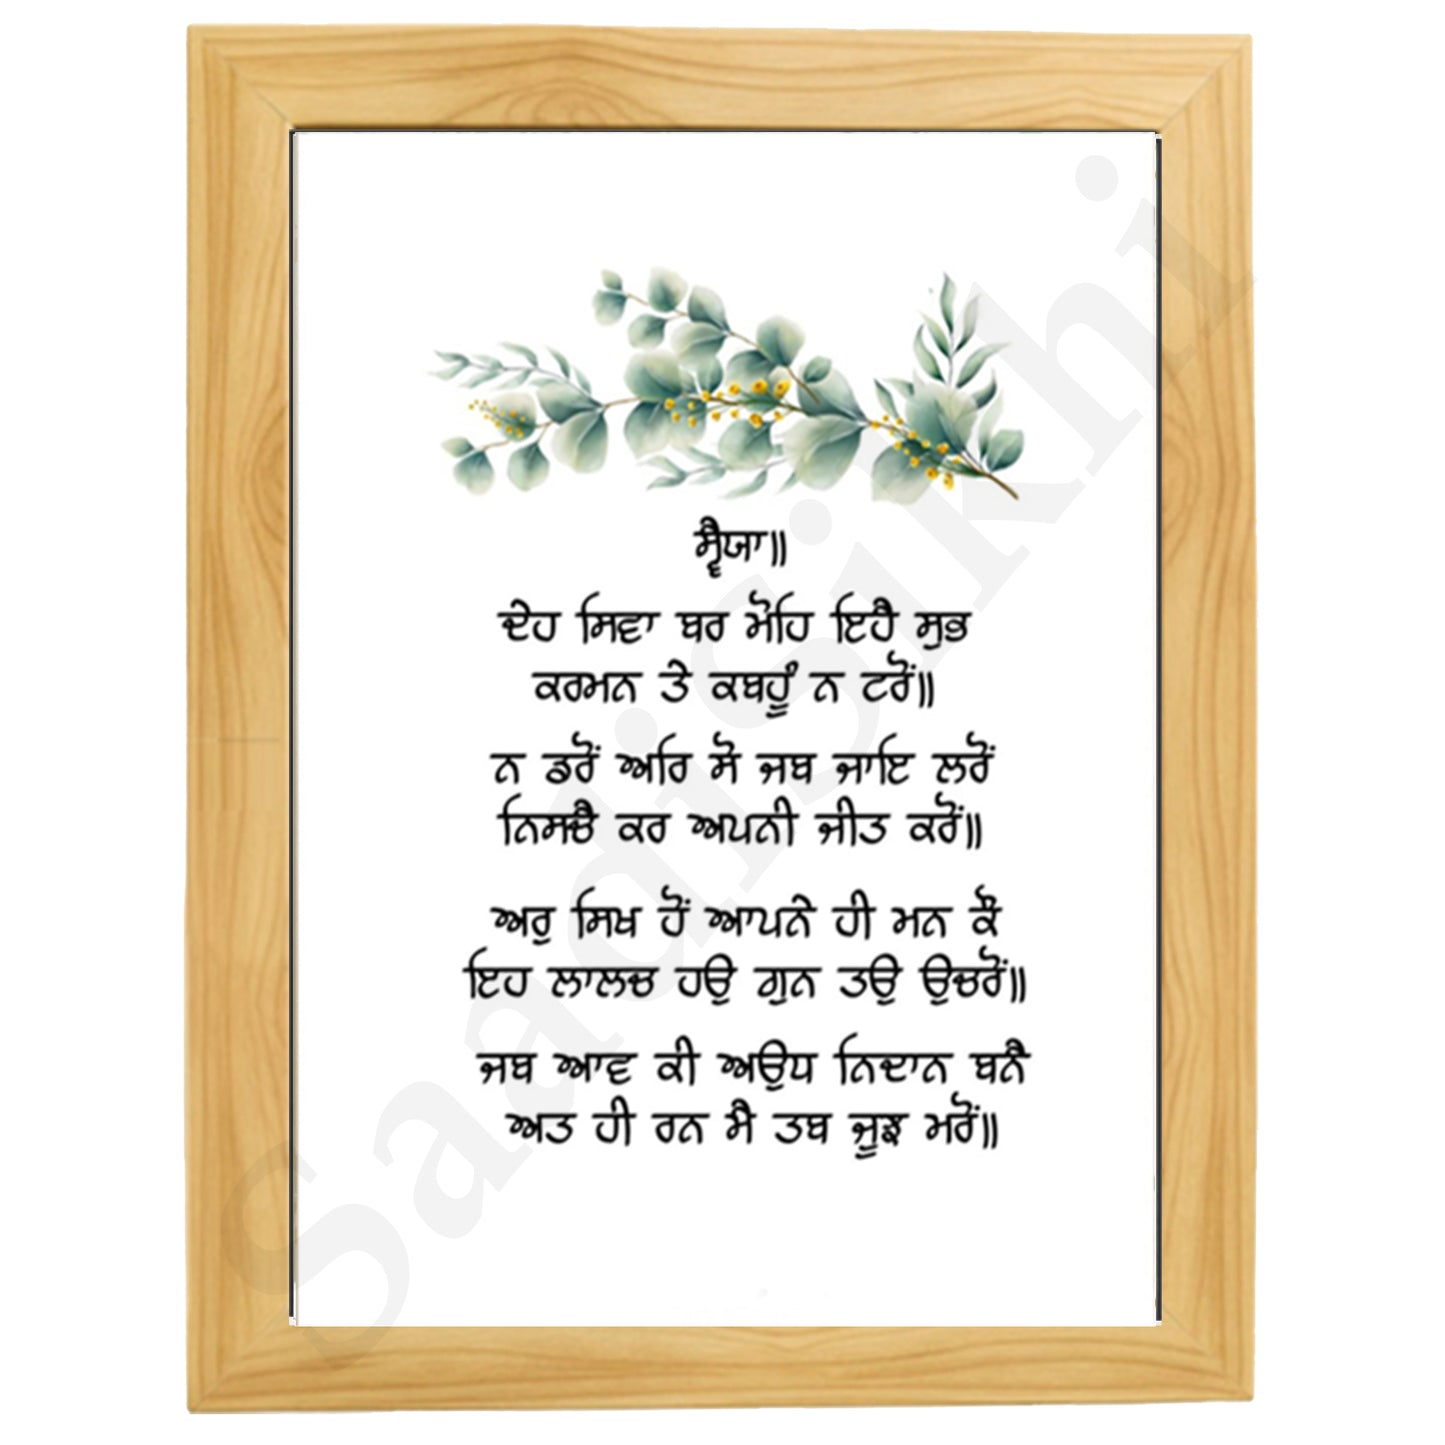 ਸ੍ਵੈਯਾ॥
ਦੇਹ ਸਿਵਾ ਬਰ ਮੋਹਿ ਇਹੈ ਸੁਭ
ਕਰਮਨ ਤੇ ਕਬਹੂੰ ਨ ਟਰੋਂ॥
ਨ ਡਰੋਂ ਅਰਿ ਸੋ ਜਬ ਜਾਇ ਲਰੋਂ
ਨਿਸਚੈ ਕਰ ਅਪਨੀ ਜੀਤ ਕਰੋਂ॥
ਅਰੁ ਸਿਖ ਹੋਂ ਆਪਨੇ ਹੀ ਮਨ ਕੌ
ਇਹ ਲਾਲਚ ਹਉ ਗੁਨ ਤਉ ਉਚਰੋਂ॥
ਜਬ ਆਵ ਕੀ ਅਉਧ ਨਿਦਾਨ ਬਨੈ
ਅਤ ਹੀ ਰਨ ਮੈ ਤਬ ਜੂਝ ਮਰੋਂ॥
SaadiSikhi